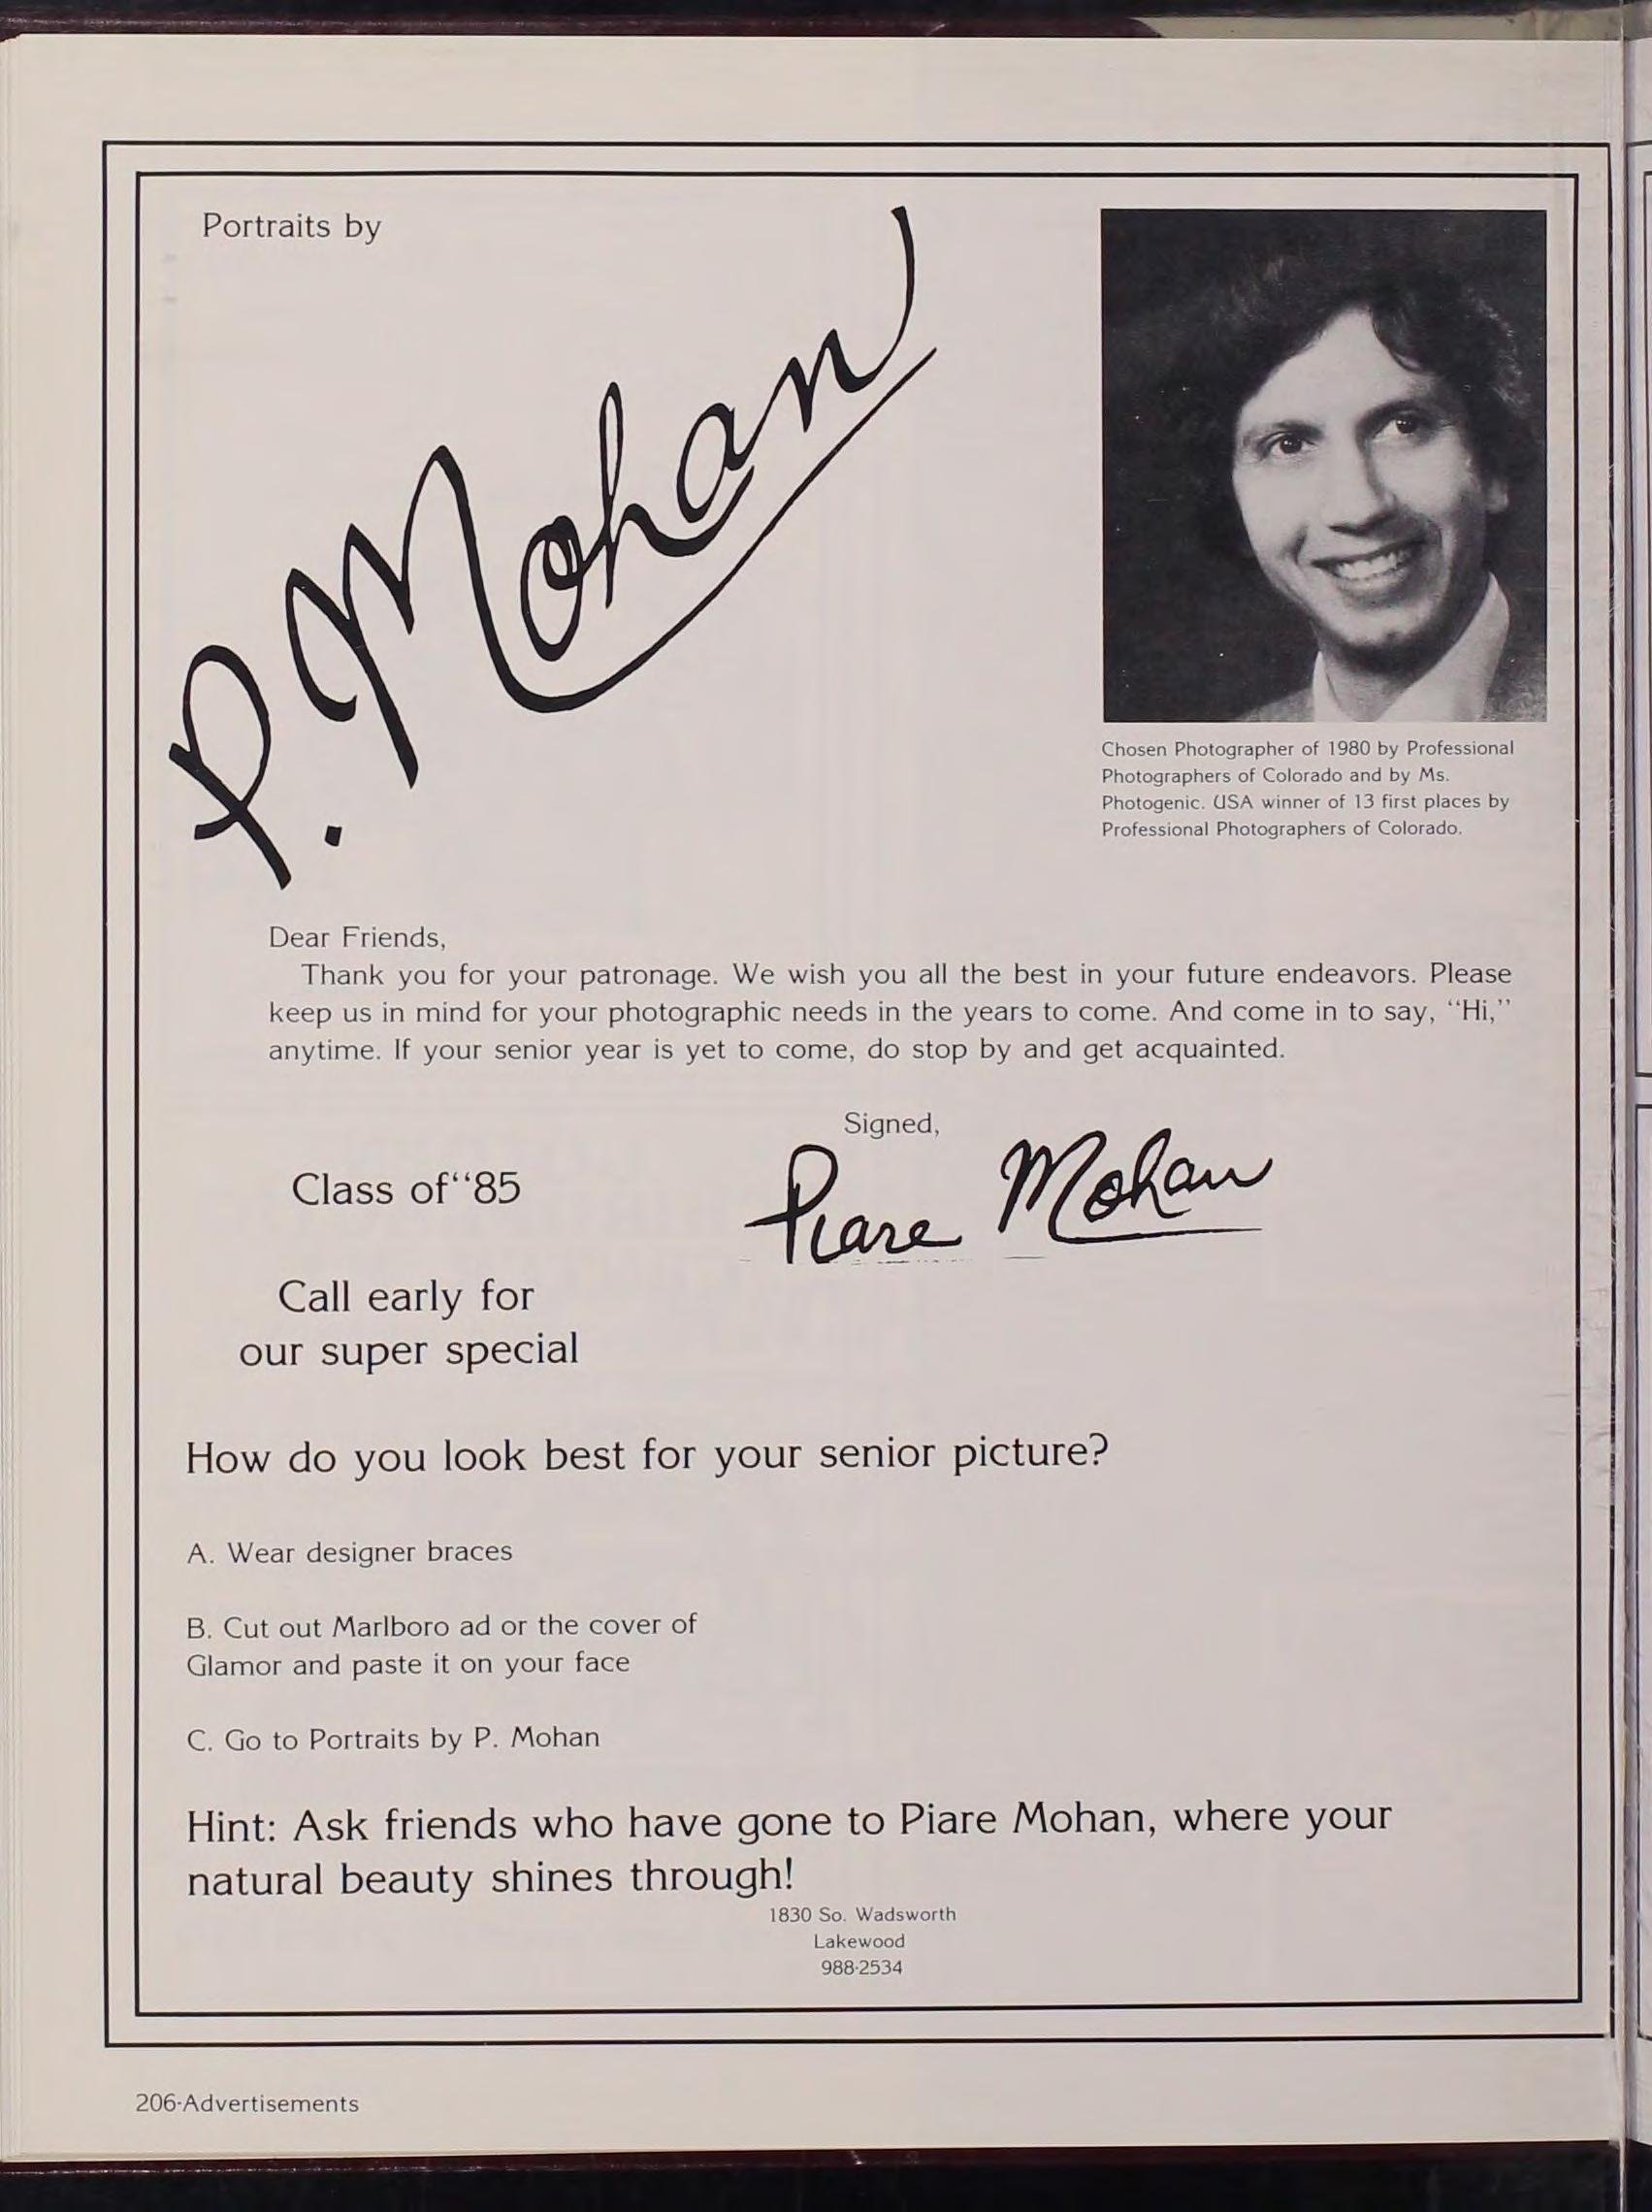 Portraits by
P. Mohan
Chosen Photographer of 1980 by Professional
Photographers of Colorado and by Ms.
Photogenic. USA winner of 13 first places by
Professional Photographers of Colorado.
Dear Friends,
Thank you for your patronage. We wish you all the best in your future endeavors. Please
keep us in mind for your photographic needs in the years to come. And come in to say, “Hi,”
anytime. If your senior year is yet to come, do stop by and get acquainted.
Signed,
Piare Mohan
Class of“85
Call early for
our super special
How do you look best for your senior picture?
A. Wear designer braces
B. Cut out Marlboro ad or the cover of
Glamor and paste it on your face
C. Go to Portraits by P. Mohan
Hint: Ask friends who have gone to Piare Mohan, where your
natural beauty shines through!
1830 So. Wadsworth
Lakewood
988-2534
206-Advertisements